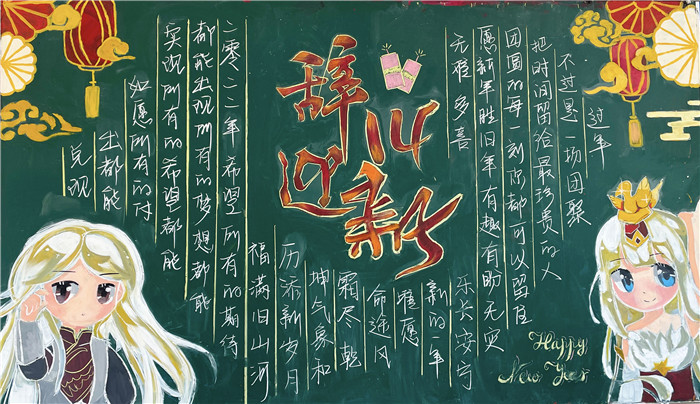 辞旧
迎新
过年
不过是一场团聚
把时间留给最珍贵的人
团圆的每一刻你都可以留住
愿新年胜旧年 有趣有盼无灾
无难多喜
乐长安宁
新的一年
唯愿
命途风
霜尽乾
坤气象和
历添新岁月
福满旧山河
二零二二年希望所有的期待
都能出现所有的梦想都能
实现所有的希望都能
如愿所有的付
出都能
兑现
Happy
New Year